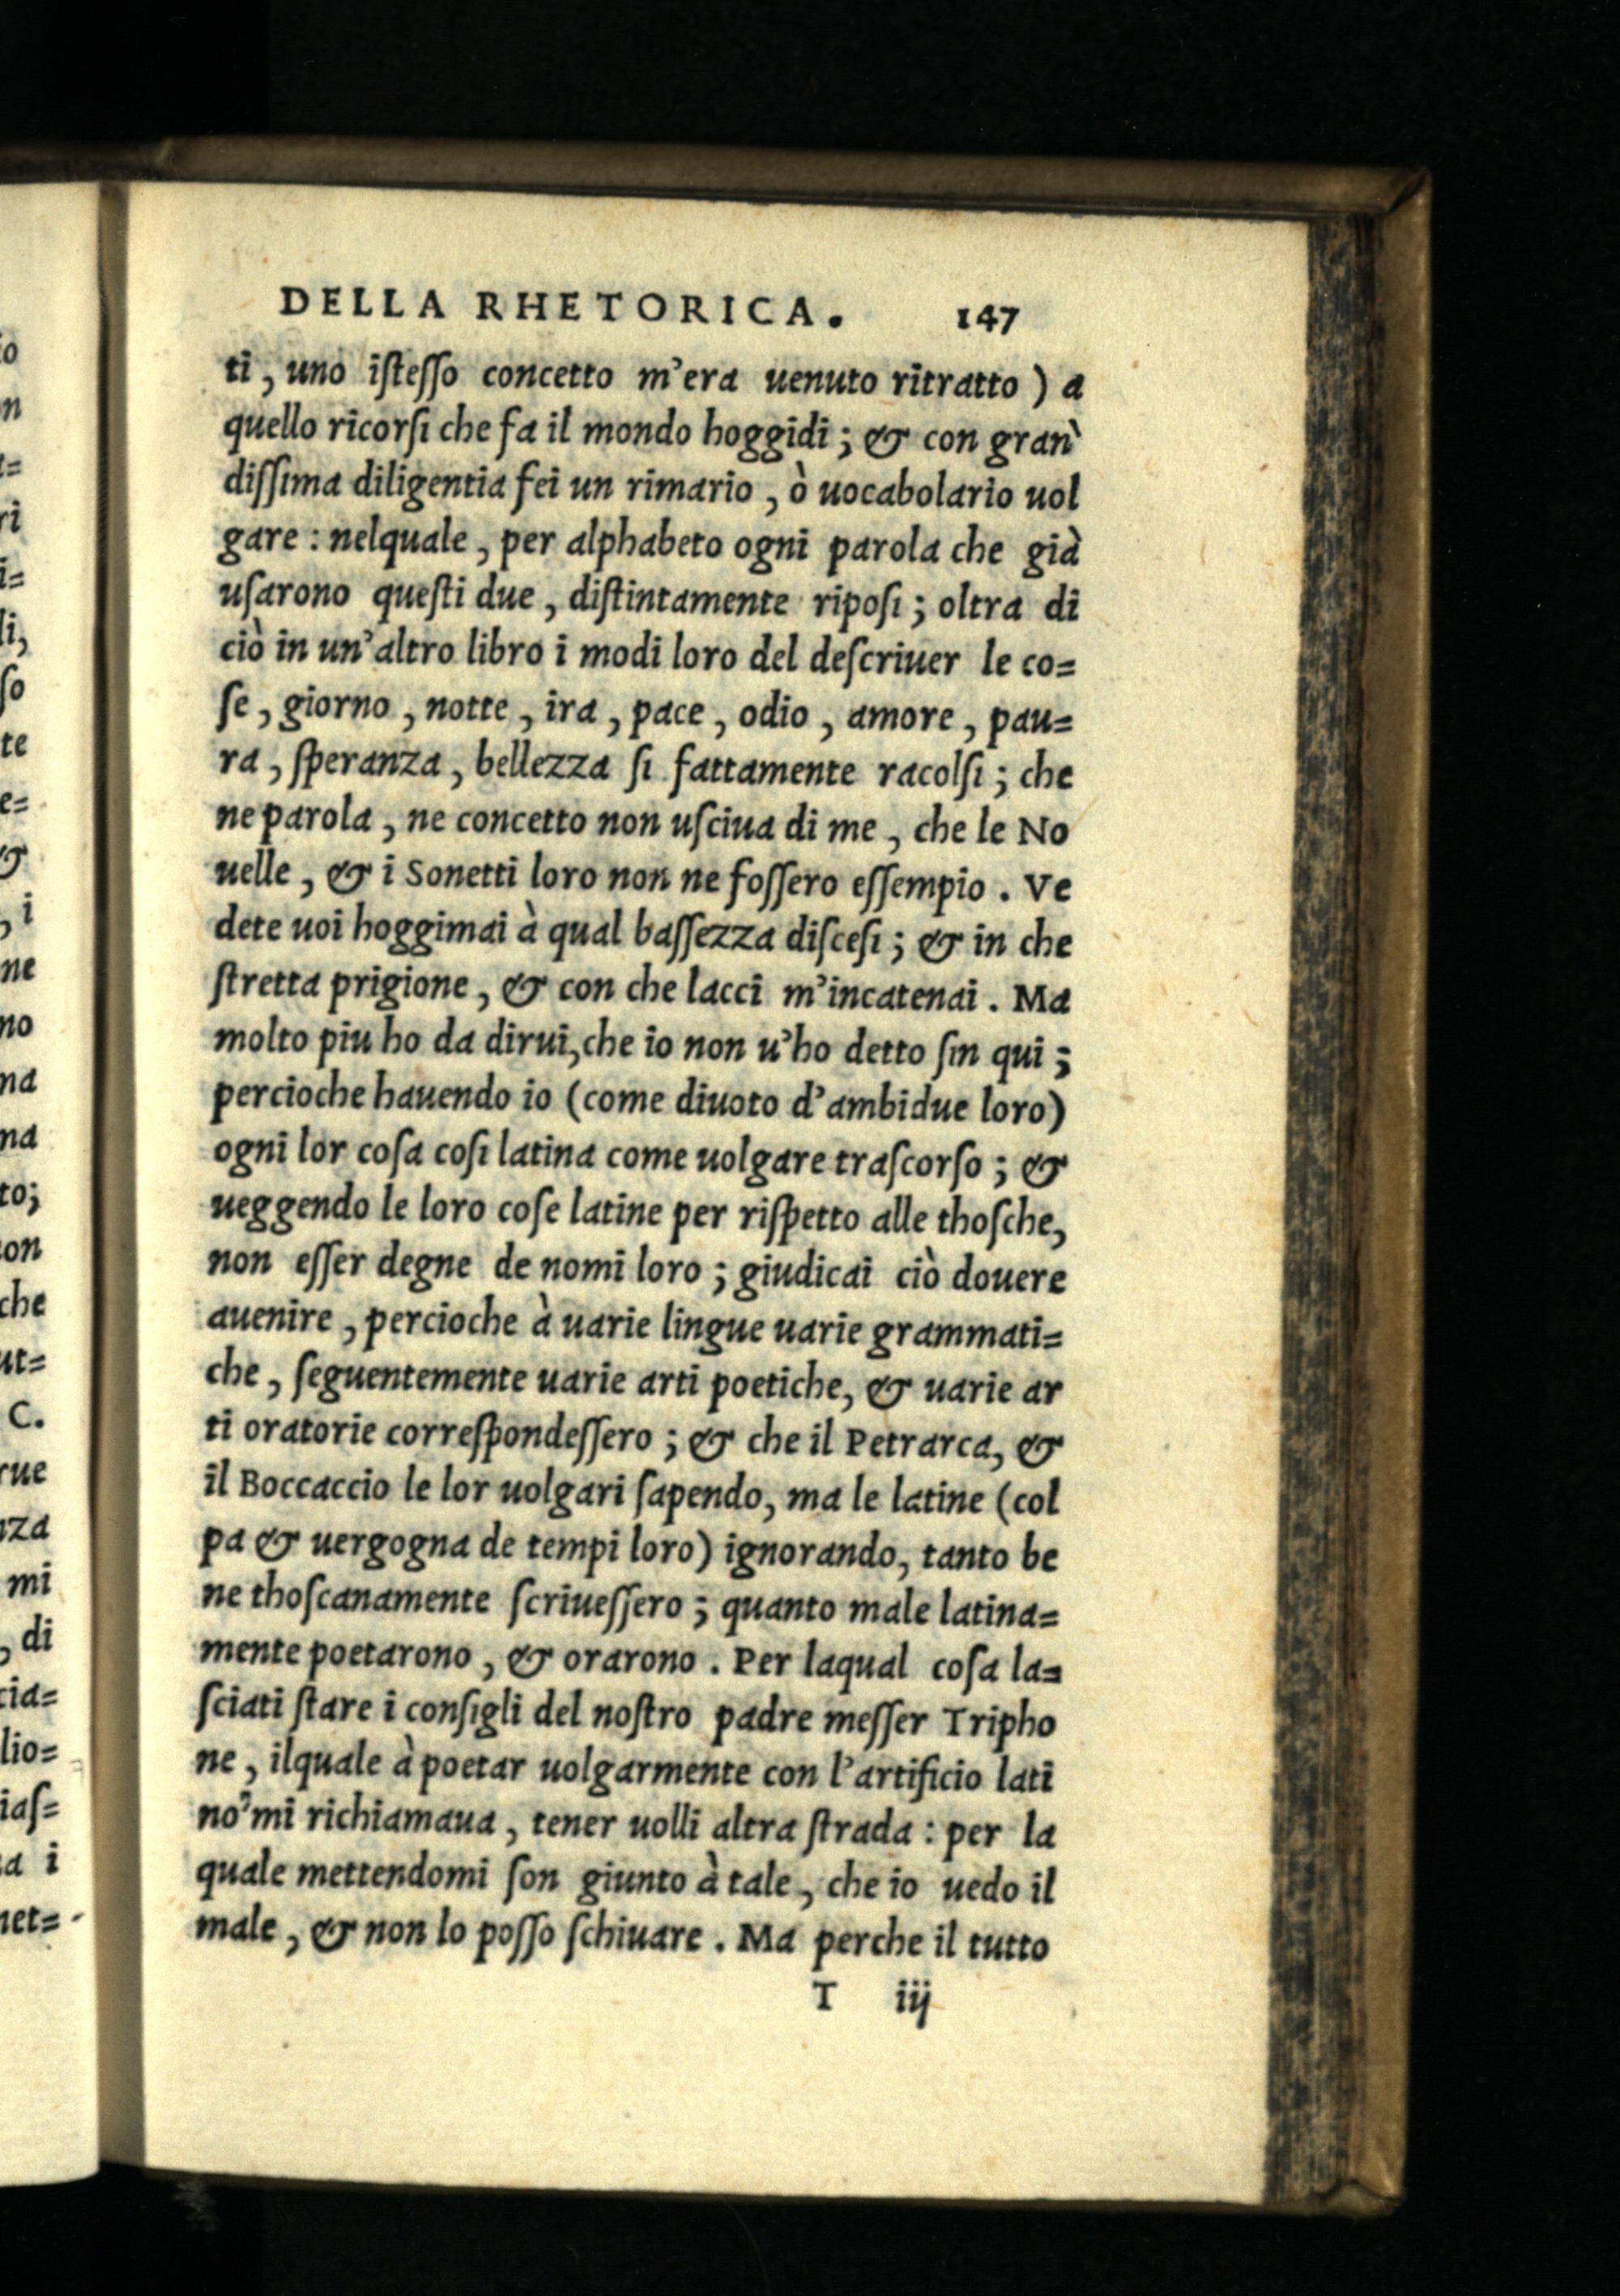 DELLA RHETORICA. 147
ti, uno iſteſſo concetto m'era uenuto ritratto) a
quello ricorſi che fa il mondo hoggidi; & con gran`
diſſima diligentia fei un rimario, ò uocabolario uol
gare: nelquale, per alphabeto ogni parola che già
uſarono queſti due, diſtintamente ripoſi; oltra di
ciò in un'altro libro i modi loro del deſcriuer le co=
ſe, giorno, notte, ira, pace, odio, amore, pau=
ra, ſperanza, bellezza ſi fattamente racolſi; che
ne parola, ne concetto non uſciua di me, che le No
uelle, & i Sonetti loro non ne foſſero eſſempio. Ve
dete uoi hoggimai à qual baſſezza diſceſi; & in che
ſtretta prigione, & con che lacci m'incatenai. Ma
molto piu ho da dirui, che io non u'ho detto ſin qui;
percioche hauendo io (come diuoto d'ambidue loro)
ogni lor coſa coſi latina come uolgare traſcorſo; &
ueggendo le loro coſe latine per riſpetto alle thoſche,
non eſſer degne de nomi loro; giudicai ciò douere
auenire, percioche à uarie lingue uarie grammati=
che, ſeguentemente uarie arti poetiche, & uarie ar
ti oratorie correſpondeſſero; & che il Petrarca, &
il Boccaccio le lor uolgari ſapendo, ma le latine (col
pa & uergogna de tempi loro) ignorando, tanto be
ne thoſcanamente ſcriueſſero; quanto male latina=
mente poetarono, & orarono. Per laqual coſa la=
ſciati ſtare i conſigli del noſtro padre meſſer Tripho
ne, ilquale à poetar uolgarmente con l'artificio lati
no'mi richiamaua, tener uolli altra ſtrada: per la
quale mettendomi ſon giunto à tale, che io uedo il
male, & non lo poſſo ſchiuare. Ma perche il tutto
T iij